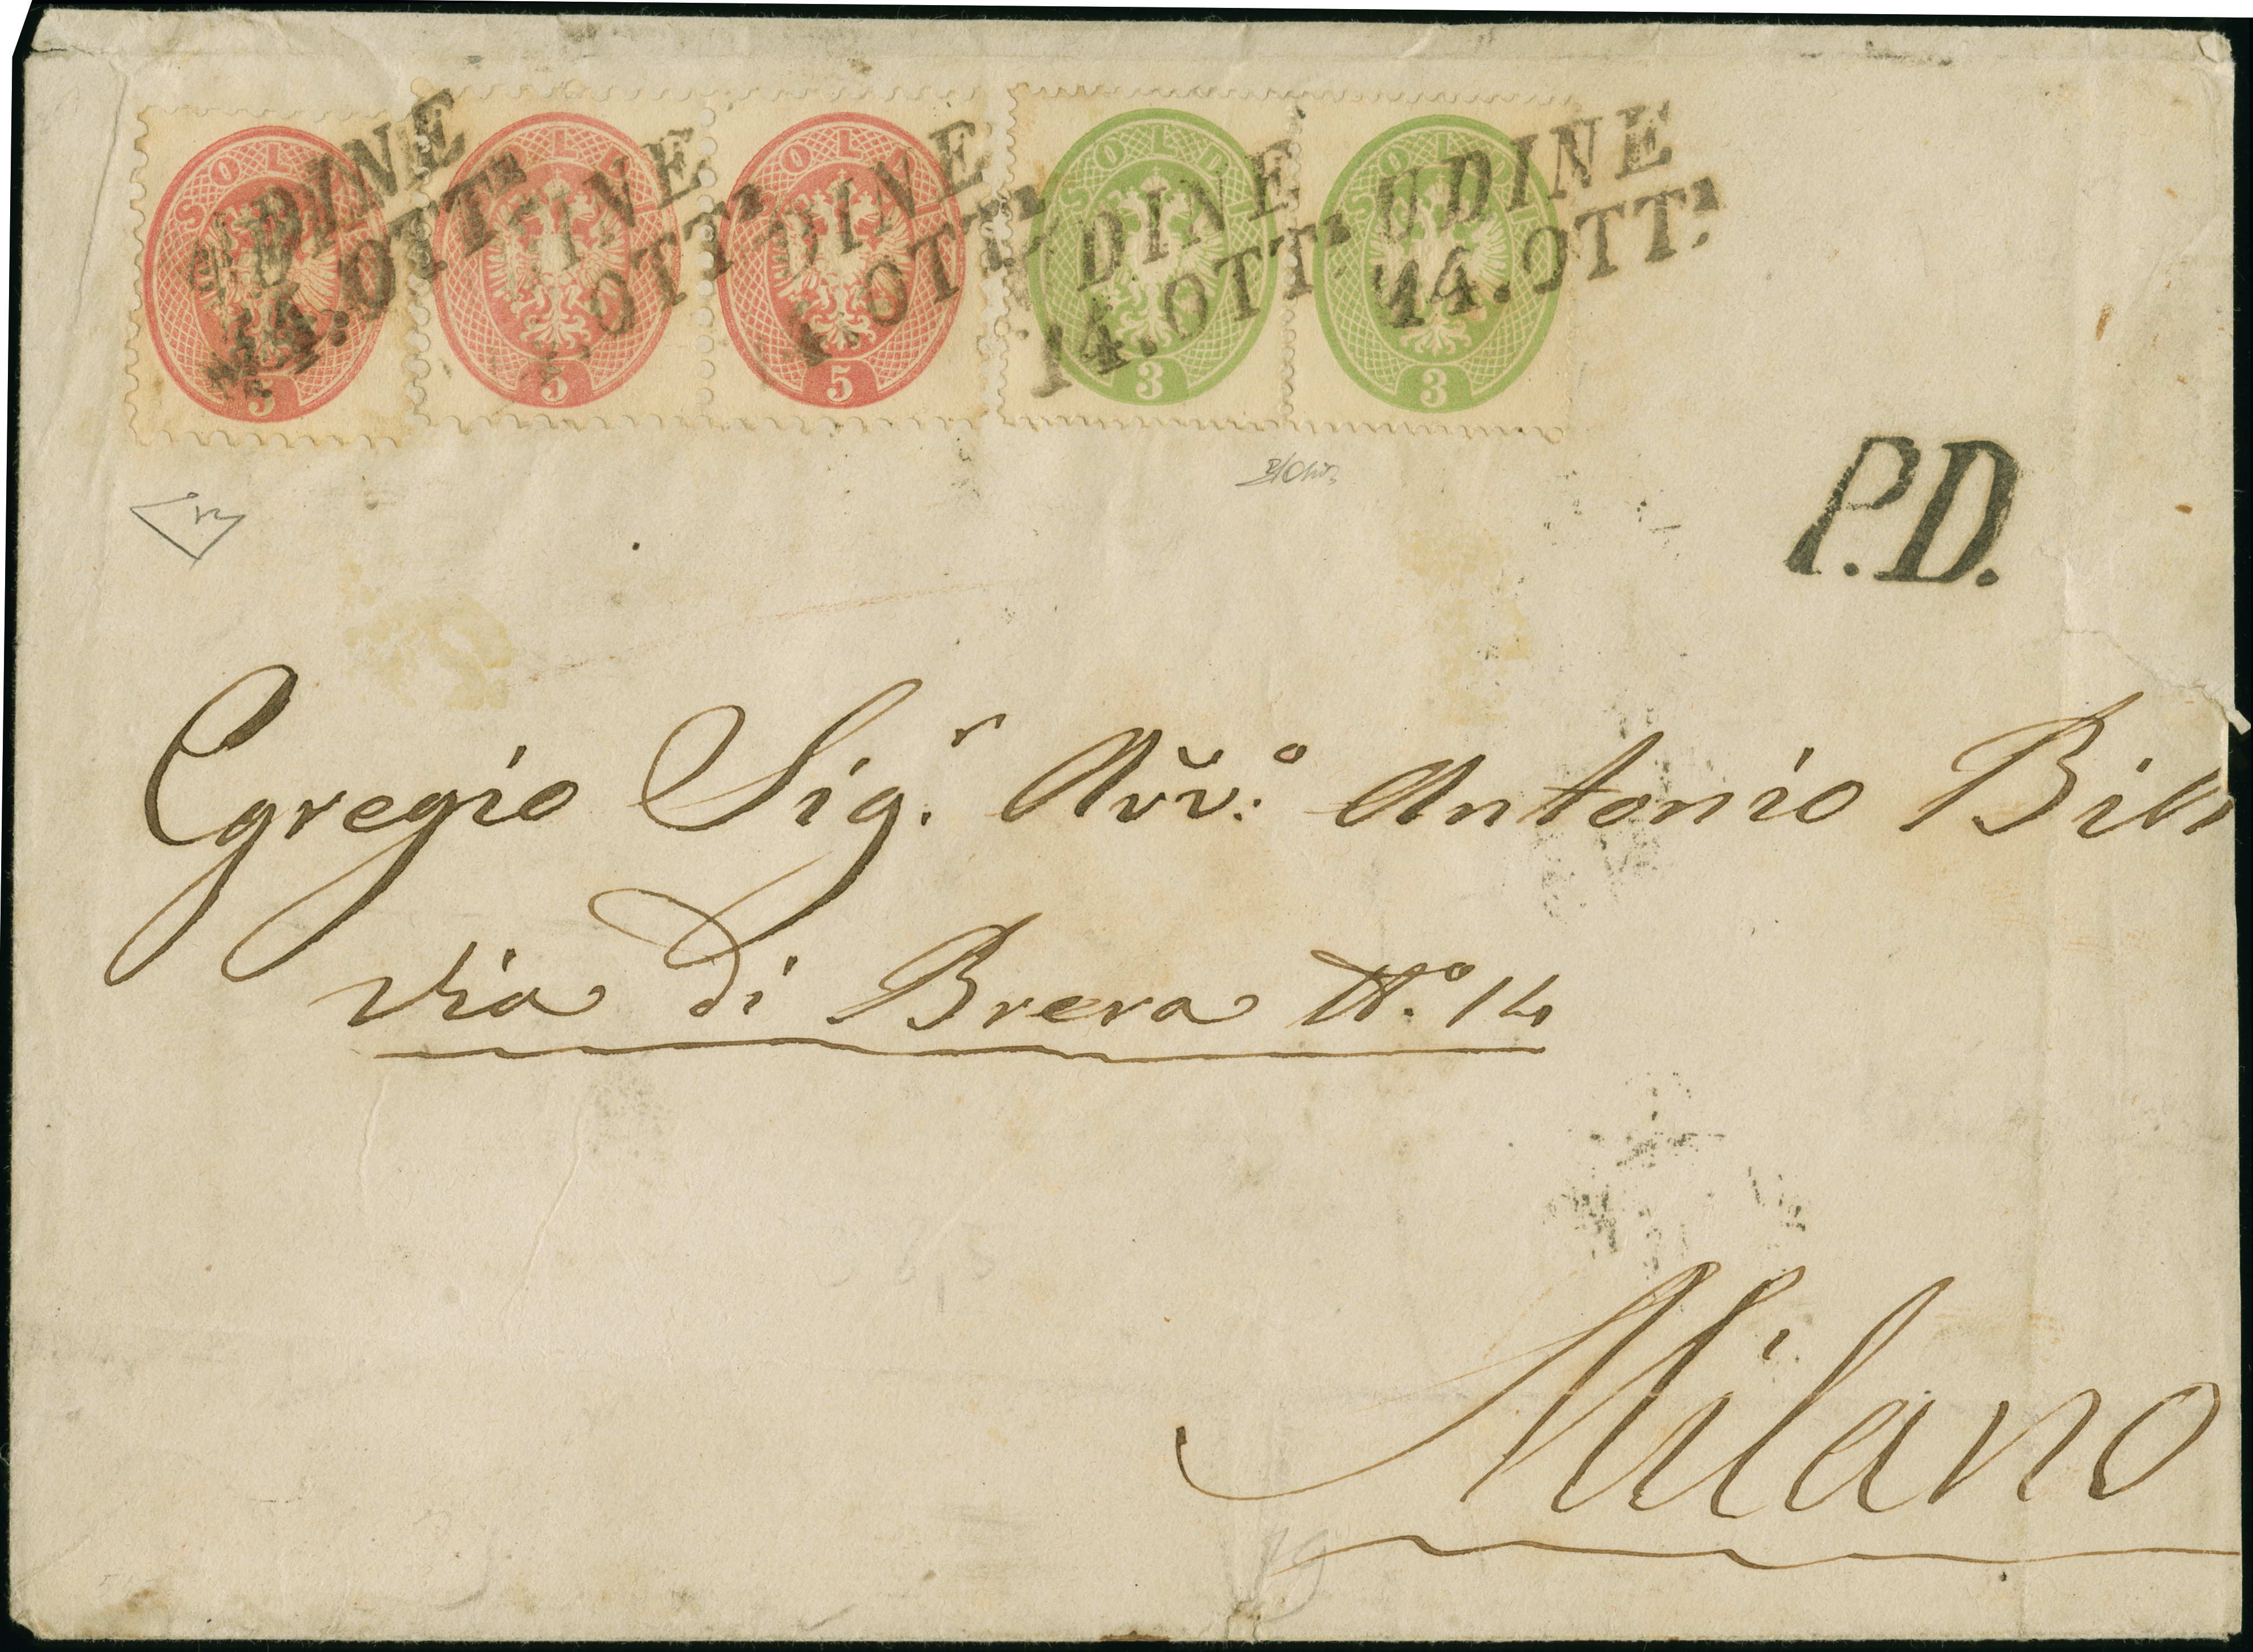 SOLDI SOLDI SOLDI SOLDI SOLDI
UDINE DINE DINE DINE UDINE
14.OTT.e .OTT.e 4.OTT.e 14.OTT.e 14.OTT.e
5 5 5 3 3
P.D.
Egregio Sig.r Avv.o Antonio Bill
Via di Brera N.o 14
Milano